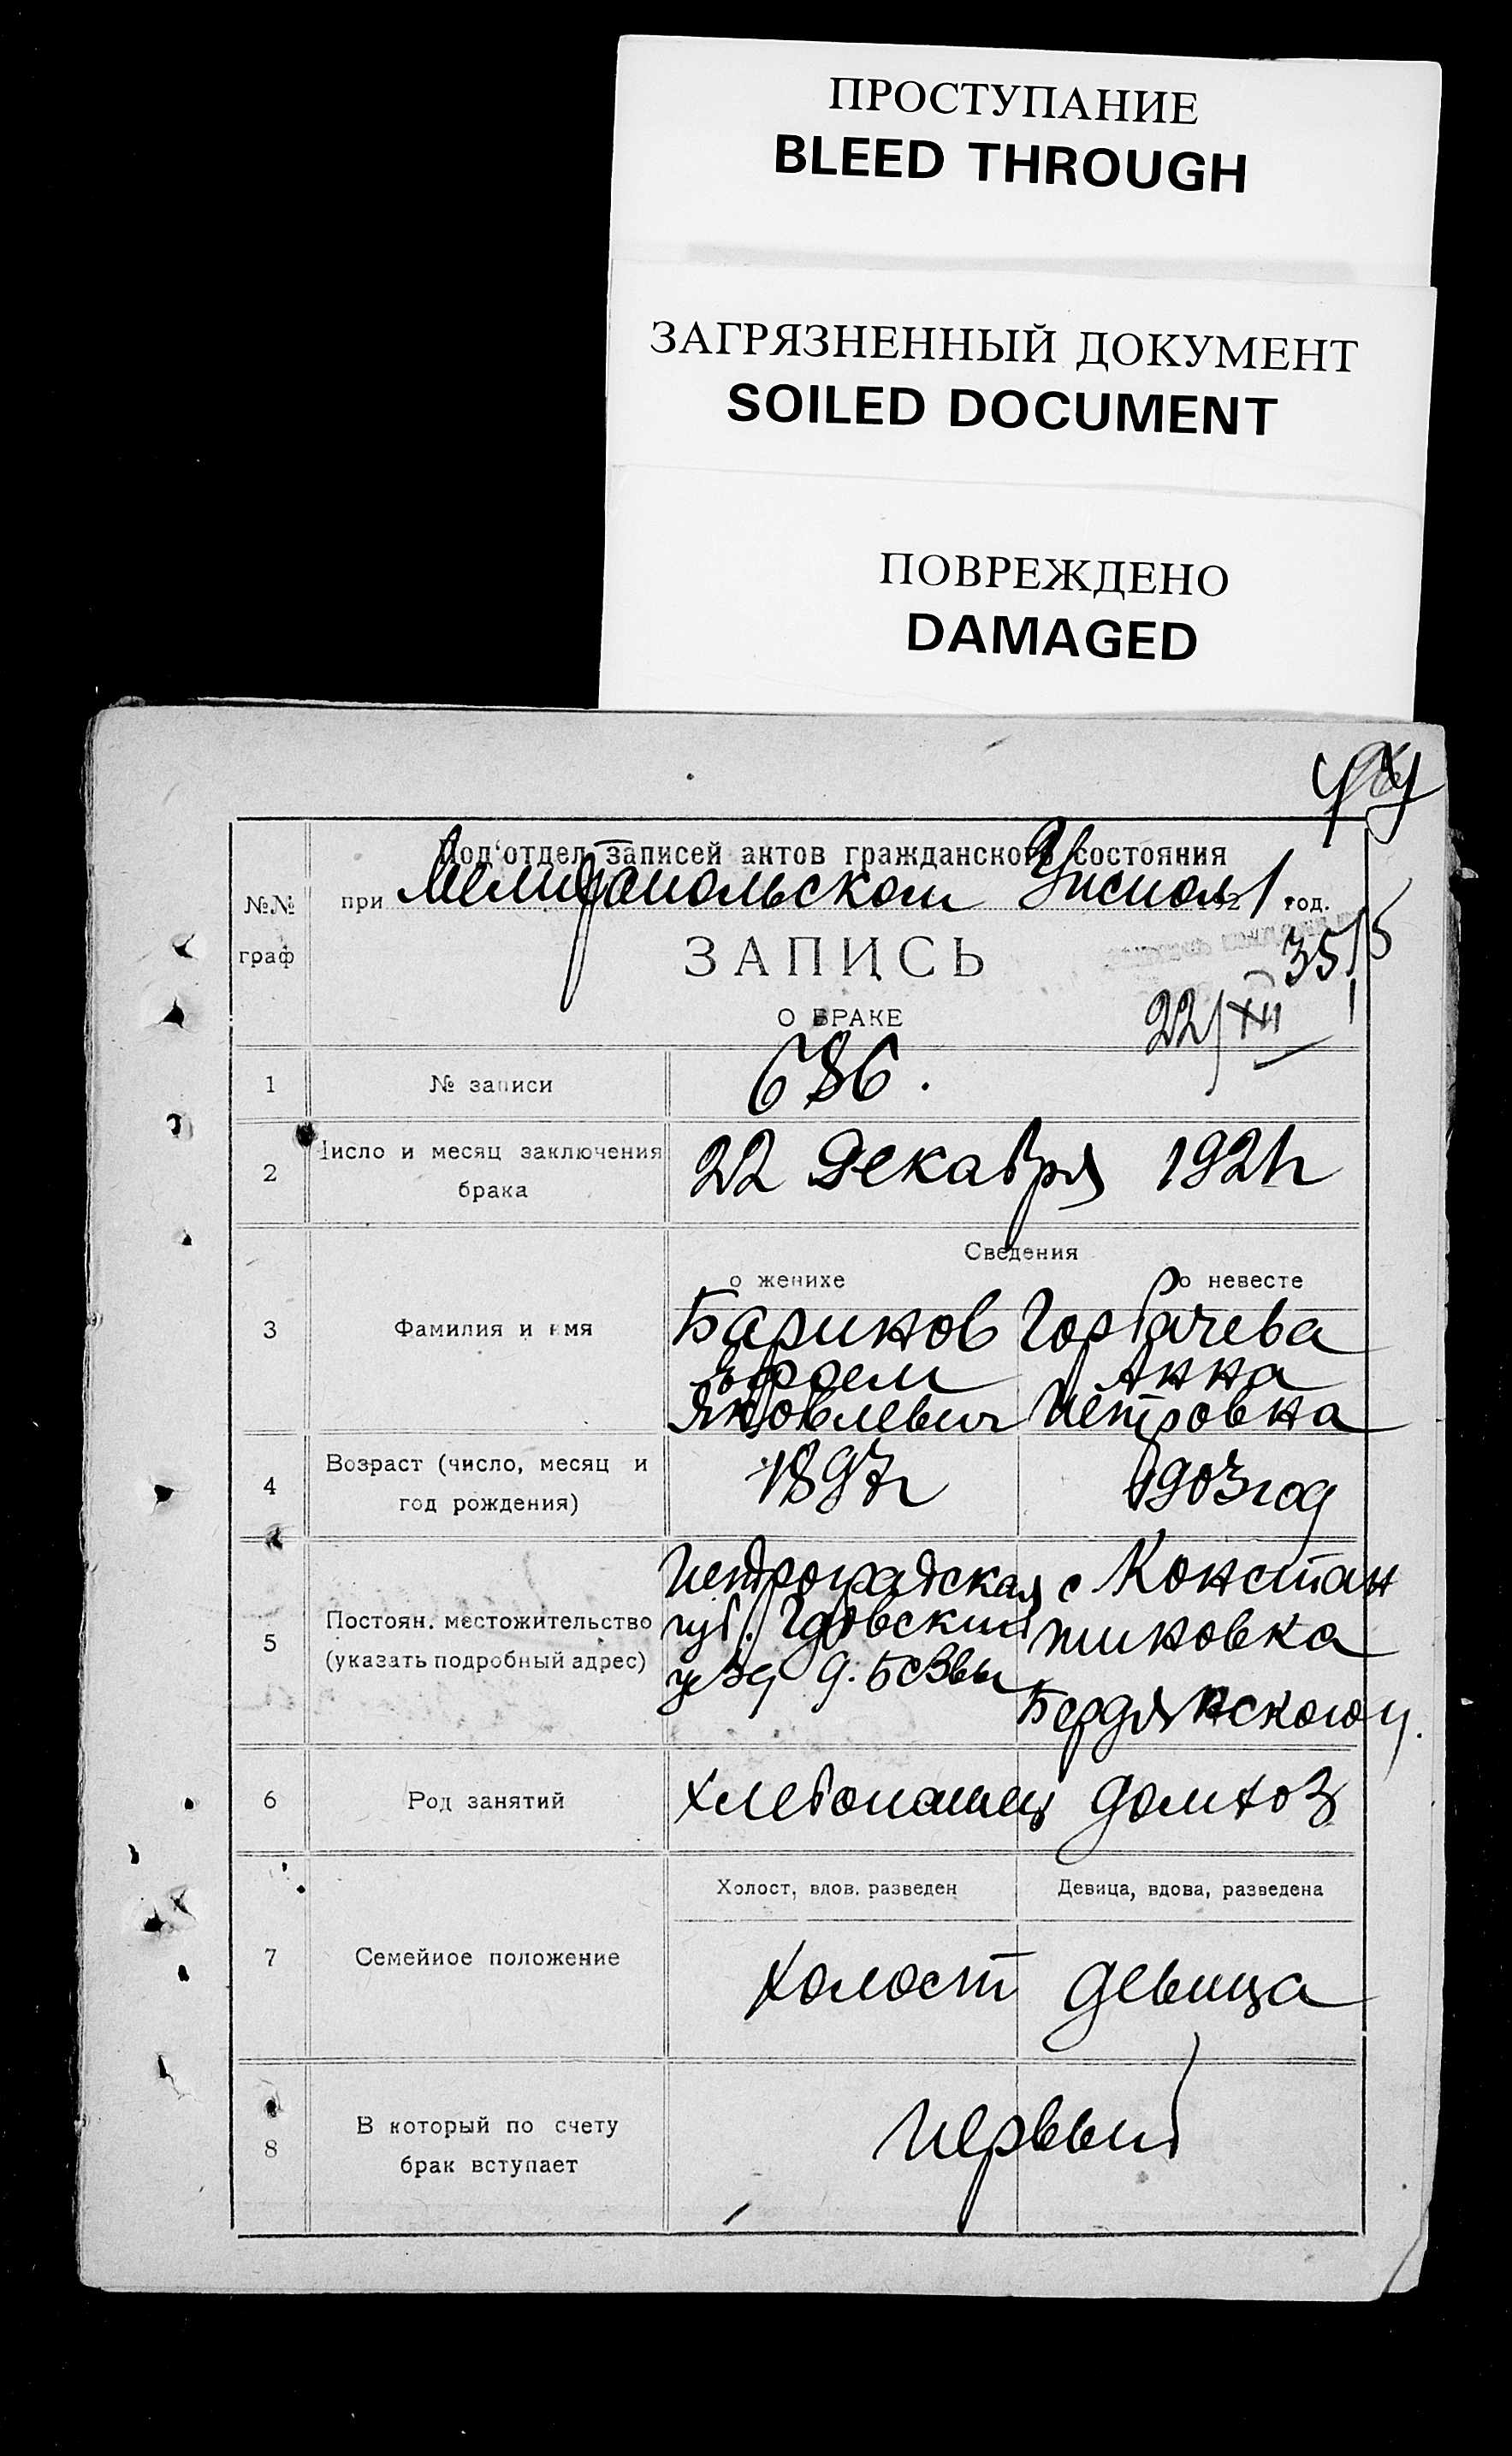 ПРОСТУПАНИЕ
BLEED THROUGH
ЗАГРЯЗНЕННЫЙ ДОКУМЕНТ
SOILED DOCUMENT
ПОВРЕЖДЕНО
DAMAGED
Под'отдел записей актов гражданского состояния
№№ граф
при Мелитопольском Уисполк 1921 год.
ЗАПИСЬ
3515
О БРАКЕ
22/XII
1 № записи 686.
2 Число и месяц заключения брака 22 Декабря 1921 г
Сведения
о женихе о невесте
3 Фамилия и имя
Бариков Горбачева
Ефрем Анна
Яковлевич Петровна
4 Возраст (число, месяц и год рождения) 1897 г 1903 год
5 Постоян. местожительство (указать подробный адрес)
Петроградская с Констан
губ. Гдовский тиновка
уезд д.
Бердянского у.
6 Род занятий Хлебопашец домхоз
Холост, вдов, разведен Девица, вдова, разведена
7 Семейное положение холост девица
8 В который по счету брак вступает первый